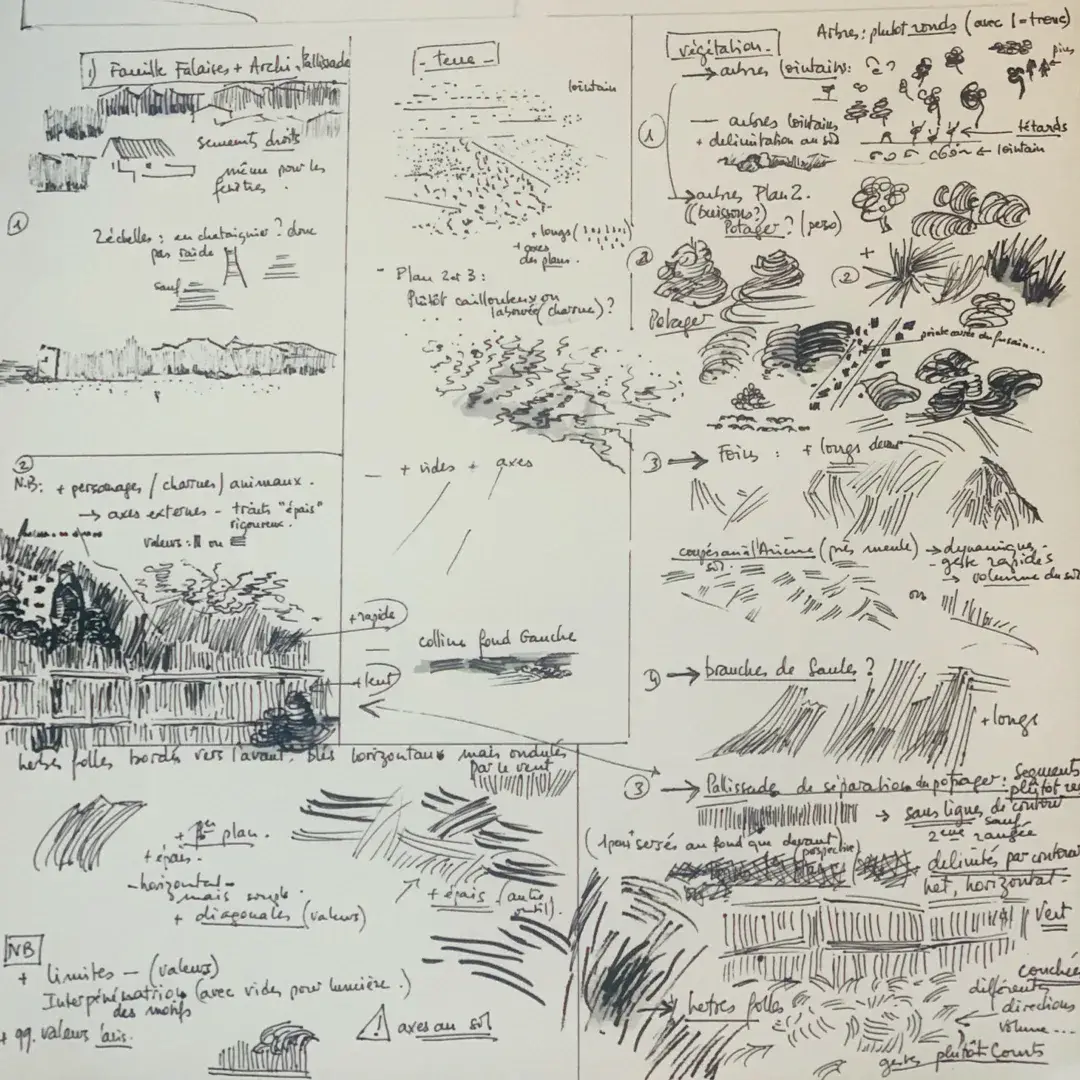 1) Famille Falaises + Archi. Pallissade
segments droits
même pour les
fenêtres.
1
2 échelles : en chataignier ? donc
pas raide
sauf
2
N.B: + personnages / charrues / animaux.
→ axes externes - traits "épais"
rigoureux.
valeurs : ou
+ rapide
+ lent
- terre -
lointain
+ longs ( )
+ axes
des plans.
- Plan 2 et 3 :
Plutôt caillouteux ou
labourée (charrue) ?
+ vides + axes
colline fond Gauche
végétation.
Arbres : plutôt ronds (avec 1 = tronc)
→ arbres lointains :
pins
1
— arbres lointains
+ délimitation au sol
← têtards
← lointain
→ arbres Plan 2.
(buissons ?)
Potager ? (perso)
2
+
2
Potager
pointe carrée du fusain...
3 → Foins : + longs devant
coupés an à l'Arienne (près meule)
sol.
→ dynamique
- geste rapides
→ volume du sol
ou
→ branches de Saules ?
+ longs
3 → Pallissade de séparation du potager : Segments
plutôt
→ sans lignes de contour
sauf
2ème rangée
(1 poui serrés au fond que devant)
perspective
délimités par contour
net, horizontal.
Vert
couchée
différentes
directions
Volume...
→ herbes folles
gestes plutôt Courts
herbes folles bordés vers l'avant. blés horizontaux mais ondulés
par le vent
+ 1er plan.
+ épais.
- horizontal -
mais souple.
+ diagonales (valeurs)
+ épais (autre
outil).
NB
+ limites - (valeurs)
Interpénétration (avec vides pour lumière.)
des motifs
+ qq. valeurs
⚠ axes au sol